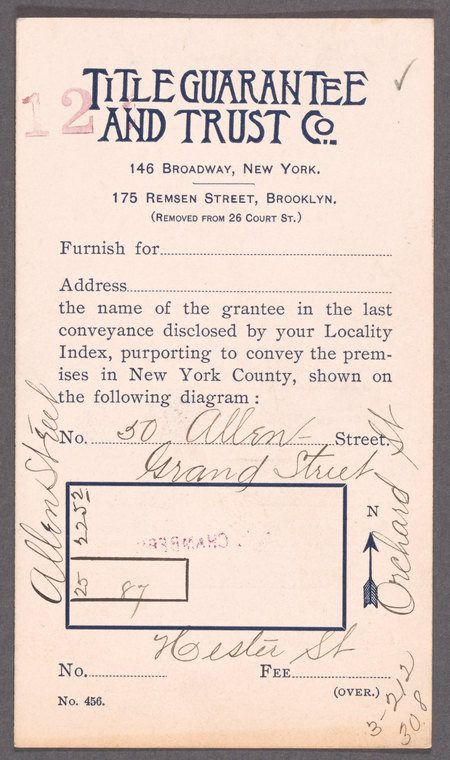 12
TITLE GUARANTEE
AND TRUST CO.
146 BROADWAY, NEW YORK.
175 REMSEN STREET, BROOKLYN.
(REMOVED FROM 26 COURT ST.)
Furnish for
Address
the name of the grantee in the last
conveyance disclosed by your Locality
Index, purporting to convey the prem-
ises in New York County, shown on
the following diagram :
No. 50 Allen Street.
Grand Street
Allen Street
Orchard St
N
25
87
Hester St
No. FEE
(OVER.)
No. 456.
3-212
308